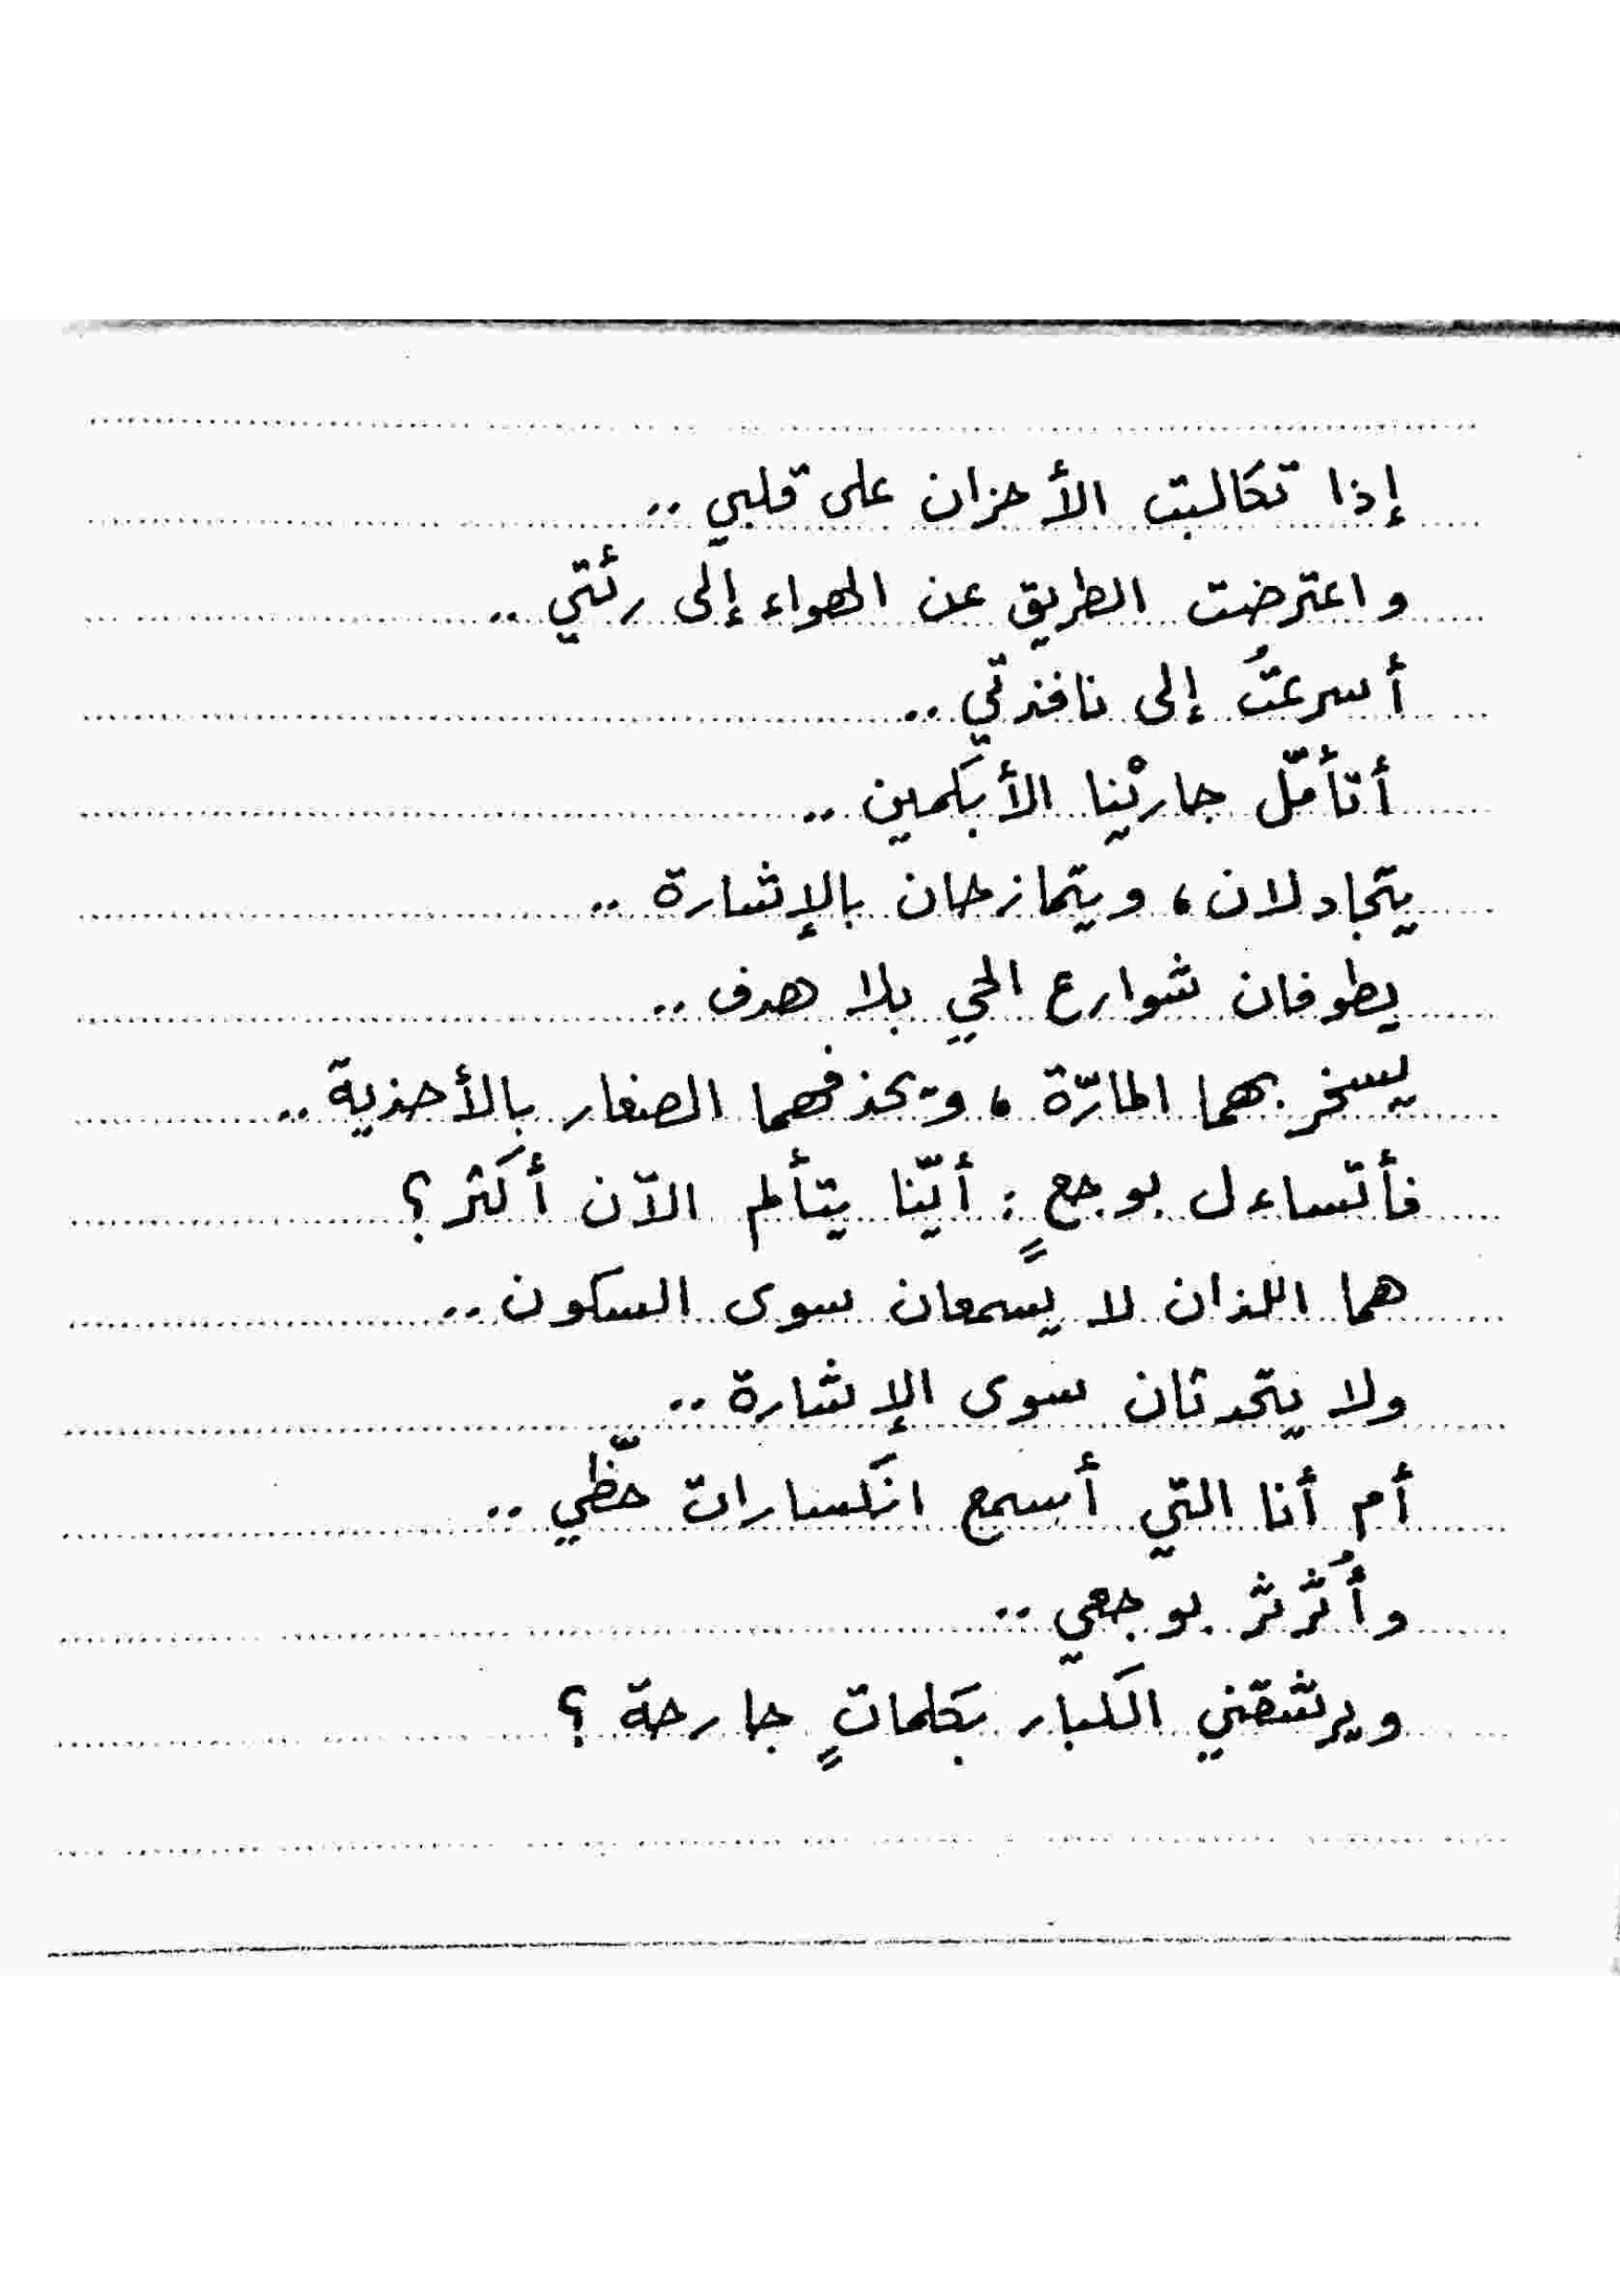 إذا تكالبت الأحزان على قلبي ..
واعترضت الطريق عن الهواء إلى رئتي ..
أسرعتُ إلى نافذتي ..
أتأمّل جاريْنا الأبكمين ..
يتجادلان، ويتمازحان بالإشارة ..
يطوفان شوارع الحي بلا هدف ..
يسخر بهما المارّة، ويحذفهما الصغار بالأحذية ..
فأتساءل بوجعٍ: أيّنا يتألم الآن أكثر؟
هما اللذان لا يسمعان سوى السكون ..
ولا يتحدثان سوى الإشارة ..
أم أنا التي أسمع انكسارات حظّي ..
وأُثرثر بوجعي ..
ويرشقني الكبار بكلماتٍ جارحة؟